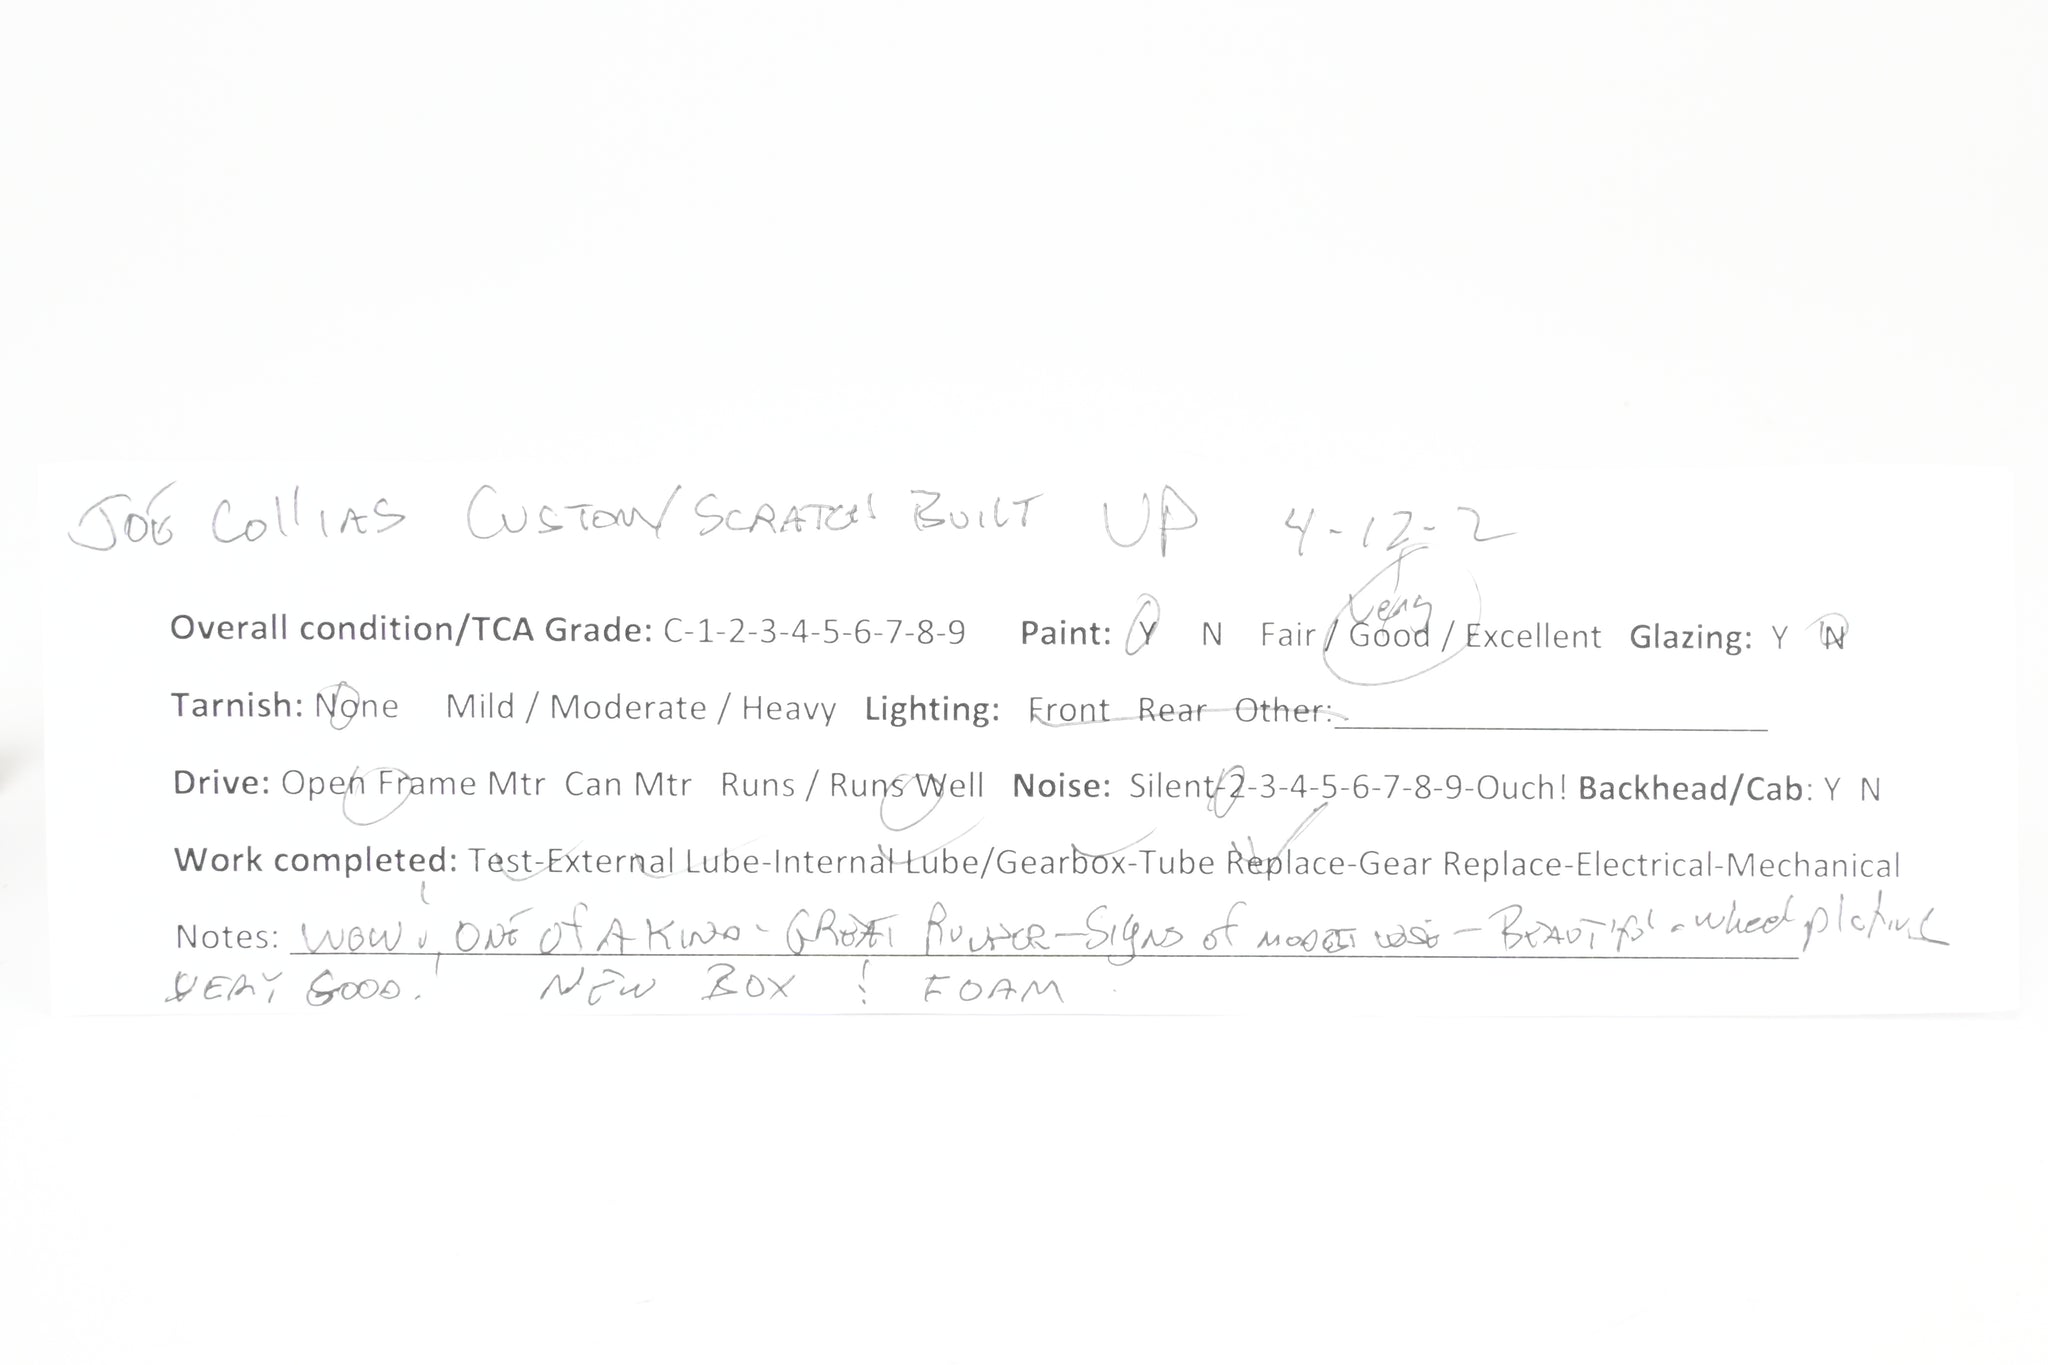 JOE COllIAS CUSTOM/SCRATCH BUILT UP 4-12-2
Very
Overall condition/TCA Grade: C-1-2-3-4-5-6-7-8-9 Paint: Y N Fair / Good / Excellent Glazing: Y N
Tarnish: None Mild / Moderate / Heavy Lighting: Front Rear Other:
Drive: Open Frame Mtr Can Mtr Runs / Runs Well Noise: Silent-2-3-4-5-6-7-8-9-Ouch! Backhead/Cab: Y N
Work completed: Test-External Lube-Internal Lube/Gearbox-Tube Replace-Gear Replace-Electrical-Mechanical
Notes: WOW! ONE Of A KIND - GREAT RUNNER - SIGNS of MODEST USE - BEAUTIFUl - wheel plating
VERY GOOD! NEW BOX ! FOAM